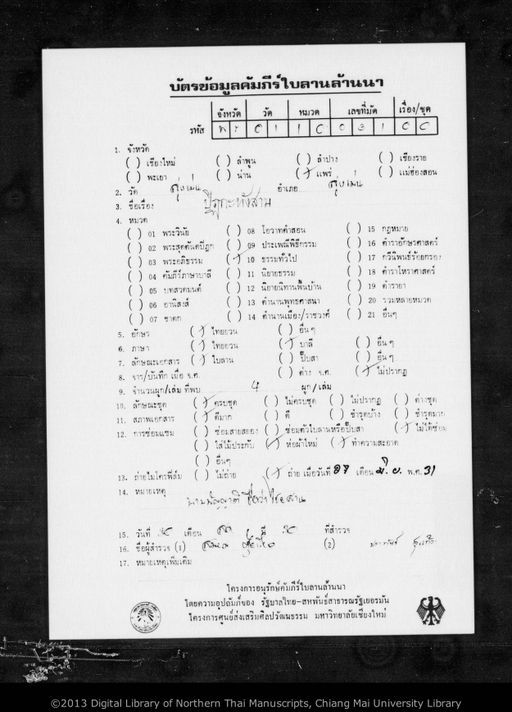 บัตรข้อมูลคัมภีร์ใบลานล้านนา
จังหวัด วัด หมวด เลขที่มัด เรื่อง/ชุด
รหัส พร 0 1 1 0 0 3 1 0 0
1. จังหวัด
( ) เชียงใหม่ ( ) ลำพูน ( ) ลำปาง ( ) เชียงราย
( ) พะเยา ( ) น่าน (/) แพร่ ( ) แม่ฮ่องสอน
2. วัด สูงเม่น อำเภอ สูงเม่น
3. ชื่อเรื่อง
4. หมวด
( ) 01 พระวินัย ( ) 08 โอวาทคำสอน ( ) 15 กฎหมาย
( ) 02 พระสุตตันตปิฎก ( ) 09 ประเพณีพิธีกรรม ( ) 16 ตำราอักษรศาสตร์
( ) 03 พระอภิธรรม (/) 10 ธรรมทั่วไป ( ) 17 กวีนิพนธ์ร้อยกรอง
( ) 04 คัมภีร์ภาษาบาลี ( ) 11 นิยายธรรม ( ) 18 ตำราโหราศาสตร์
( ) 05 บทสวดมนต์ ( ) 12 นิยายนิทานพื้นบ้าน ( ) 19 ตำรายา
( ) 06 อานิสงส์ ( ) 13 ตำนานพุทธศาสนา ( ) 20 รวมหลายหมวด
( ) 07 ชาดก ( ) 14 ตำนานเมือง/ราชวงศ์ ( ) 21 อื่นๆ
5. อักษร (/) ไทยยวน ( ) อื่นๆ
6. ภาษา (/) ไทยยวน (/) บาลี ( ) อื่น ๆ
7. ลักษณะเอกสาร (/) ใบลาน ( ) ปั๊บสา ( ) อื่น ๆ
8. จาร/บันทึก เมื่อ จ.ศ. ( ) ค่าว จ.ศ. (/) ไม่ปรากฏ
9. จำนวนผูก/เล่ม ที่พบ 4 ผูก/เล่ม
10. ลักษณะชุด (/) ครบชุด ( ) ไม่ครบชุด ( ) ไม่ปรากฏ ( ) ต่างชุด
11. สภาพเอกสาร (/) ดีมาก ( ) ดี ( ) ชำรุดบ้าง ( ) ชำรุดมาก
12. การซ่อมแซม ( ) ซ่อมสายสยอง ( ) ซ่อมตัวใบลานหรือปั๊บสา (/) ไม่ได้ซ่อม
( ) ใส่ไม้ประกับ (/) ห่อผ้าใหม่ (/) ทำความสะอาด
( ) อื่นๆ
13. ถ่ายไมโครฟิล์ม ( ) ไม่ถ่าย (/) ถ่าย เมื่อวันที่ เดือน มิ.ย. พ.ศ. 31
14. หมายเหตุ
15. วันที่ เดือน ปี ที่สำรวจ
16. ชื่อผู้สำรวจ (1) (2)
17. หมายเหตุเพิ่มเติม
โครงการอนุรักษ์คัมภีร์ใบลานล้านนา
โดยความอุปถัมภ์ของ รัฐบาลไทย-สหพันธ์สาธารณรัฐเยอรมัน
โครงการศูนย์ส่งเสริมศิลปวัฒนธรรม มหาวิทยาลัยเชียงใหม่
©2013 Digital Library of Northern Thai Manuscripts, Chiang Mai University Library